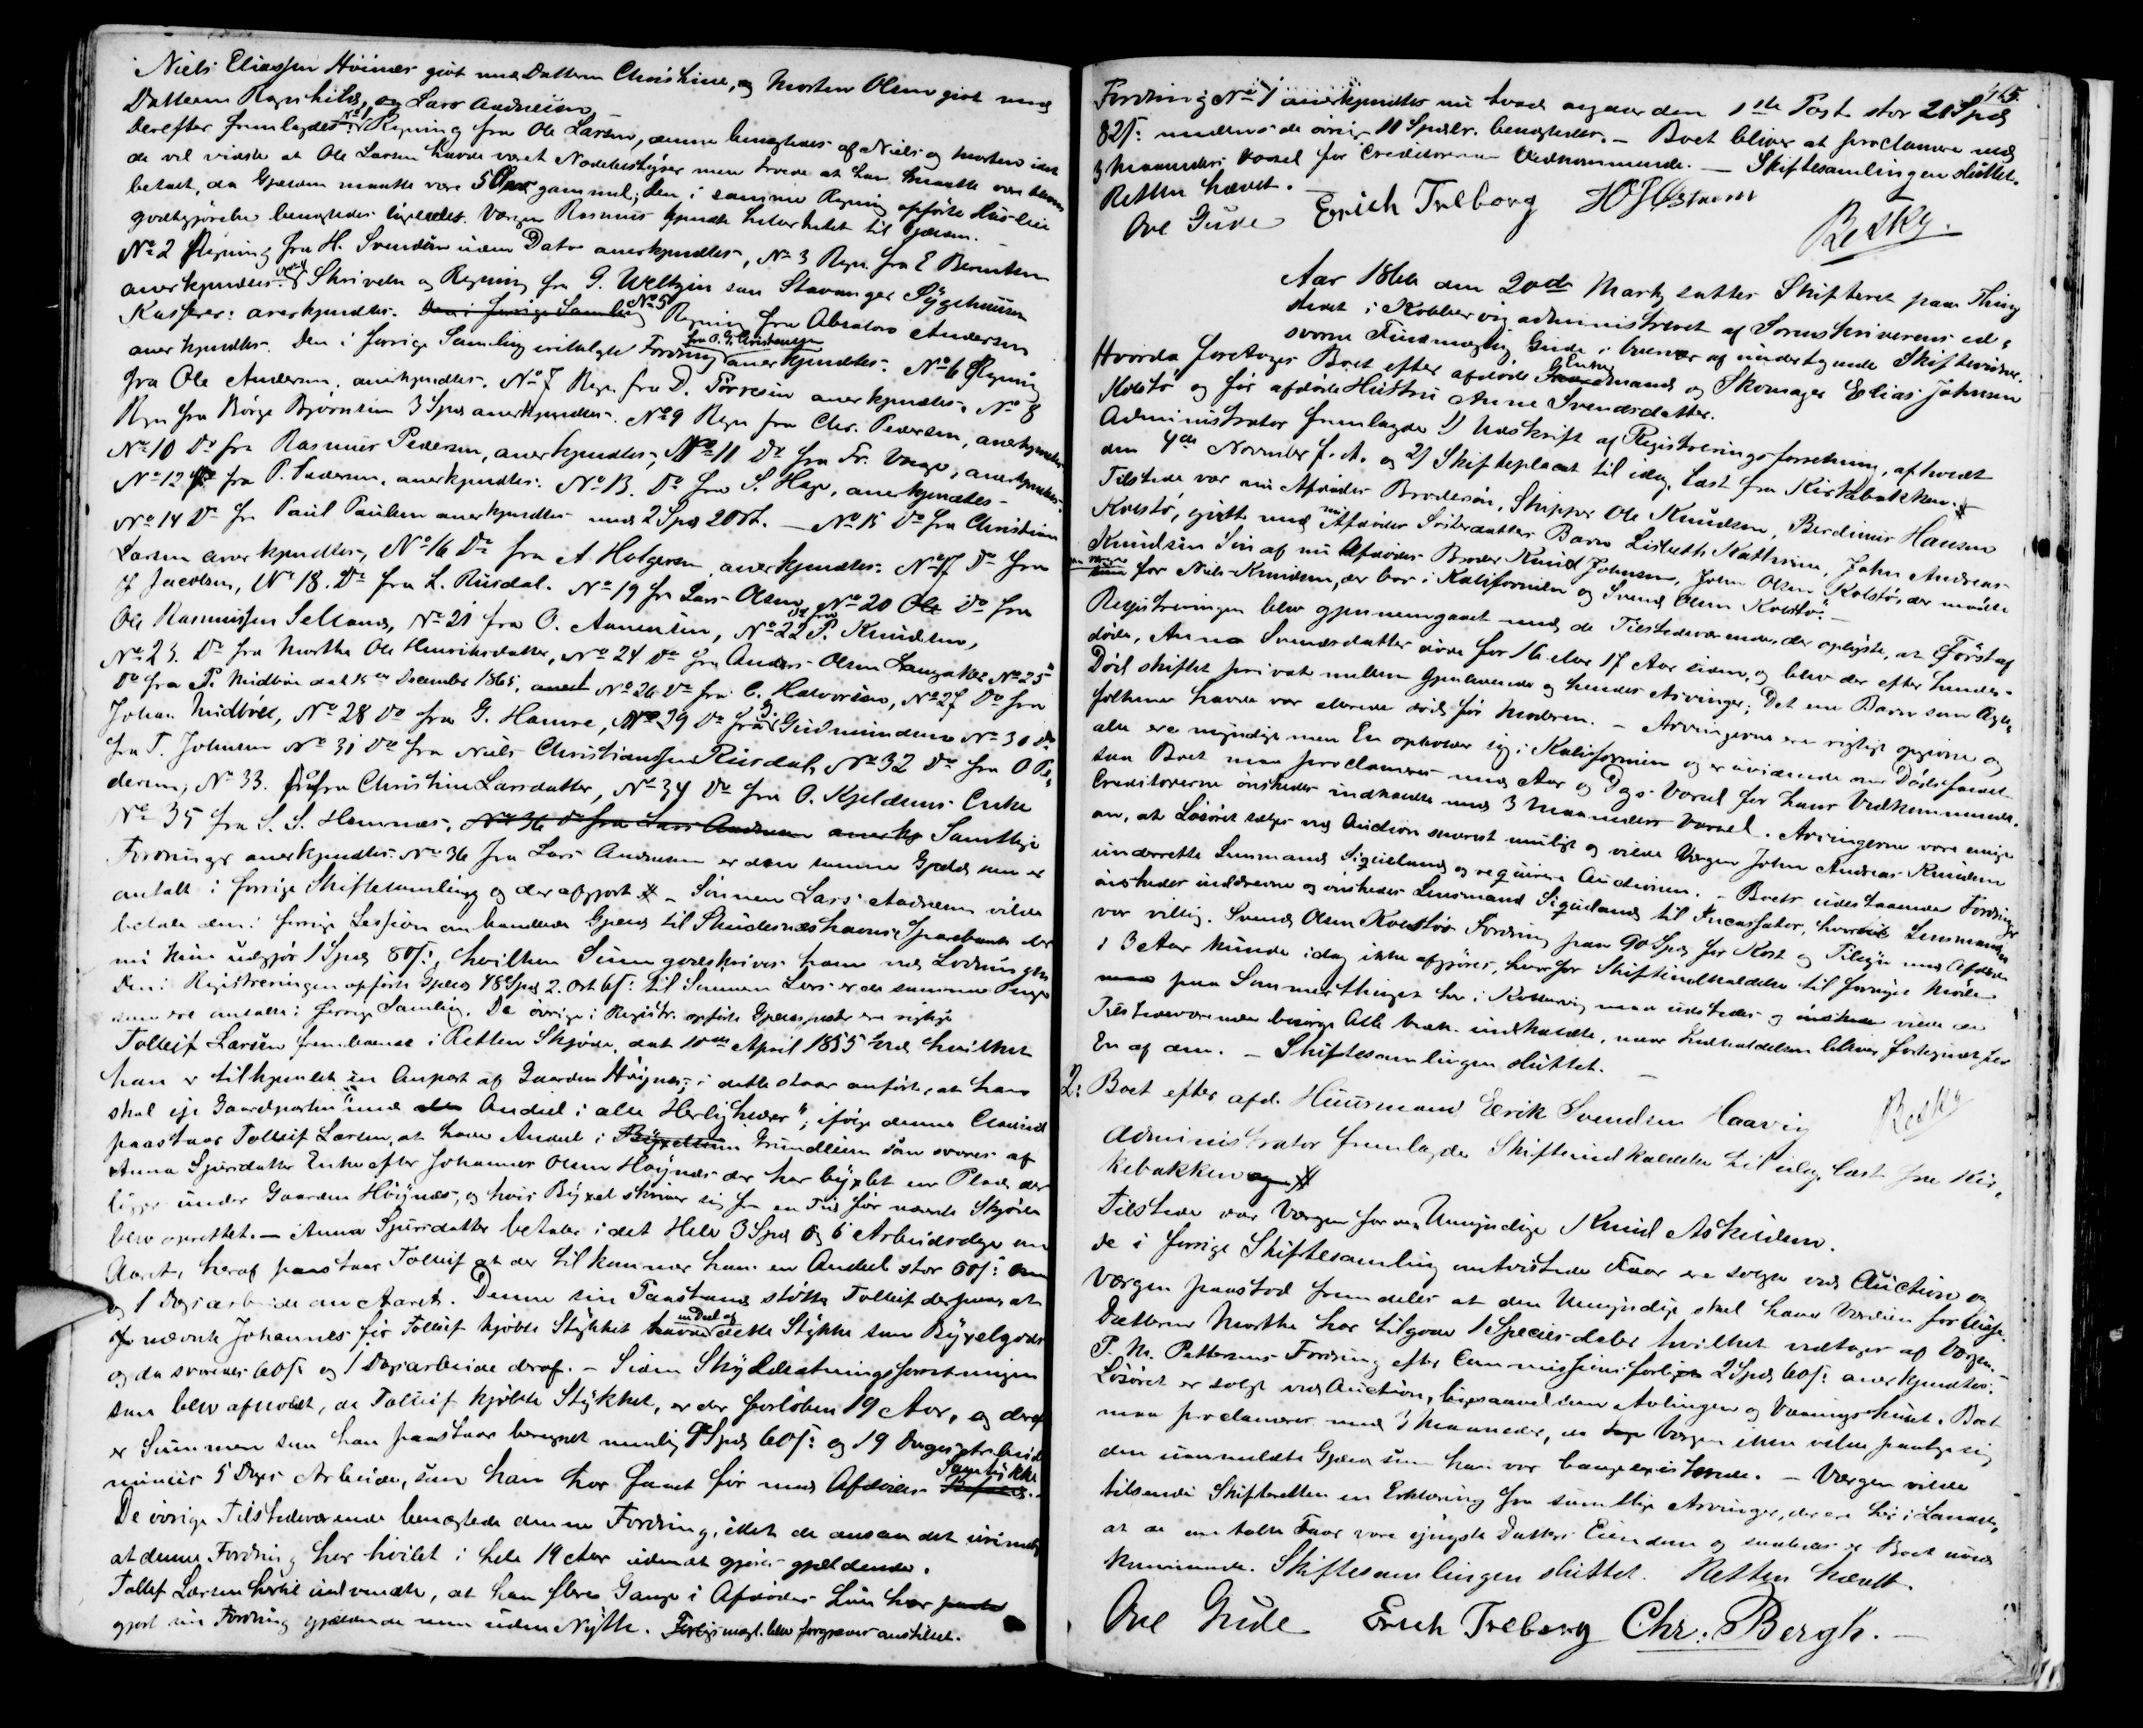 Niels Eliassen Höines givt med Datteren Christine, og Morten Olsen givt med
Datteren Ragnhilds, og Lars Andreasen
Derefter fremlagdes No 1 Regning fra Ole Larsen, denne benægtedes af Niels og Morten idet
de vel vidste at Ole Larsen havde været men troede at han maatte være
betalt, da Gjælden maatte være 5 Aar gammel; den i samme Regning opförte Huusleie
godtgjörelse benægtedes ligeledes. Værgen Rasmus kjendte Intet hertil til Gjælden.
No 2 Regning fra H. Svendsen uden Dato anerkjendtes, No 3 Regn. fra E Berentsen
anerkjendtes. Skrivelse og Regning fra G. Weltzin som Stavanger Sygehuuses
Kasserer: anerkjendtes. Den i forrige Samling No 5 Regning fra Absalon Andersen
anerkjendtes. Den i forrige Samling omtalte Fordring fra O. G. Christensen anerkjendtes. No 6 Regning
fra Ole Andersen, anerkjendtes. No 7 Regn. fra D. Torresen anerkjendtes. No 8
Regn fra Börge Björnsen 3 Spd anerkjendtes. No 9 Regn fra Chr. Pedersen, anerkjendtes
No 10 Do fra Rasmus Pedersen, anerkjendtes, No 11 Do fra Fr. Vaage, anerkjendtes
No 12 Do fra P. Andersen, anerkjendtes. No 13. Do fra S. Hage, anerkjendtes
No 14 Do fr. Paul Paulsen anerkjendtes med 2 Spd 20 s. — No 15 Do fra Christian
Larsen anerkjendtes, No 16 Do fra A Holgersen anerkjendtes. No 17 Do fra
J Jacobsen, No 18. Do fra L. Riisdal. No 19 fra Lars Olsen No 20 Ole Do fra
Ole Rasmussen Selland, No 21 fra O. Aanensen, No 22 Do fra P. Knudsen,
No 23. Do fra Martha Ole Henriksdatter, No 24 Do fra Anders Olsen Langaker No 25
Do fra P. Midböe dat 15de December 1865, No 26 Do fra C. Halvorsen, No 27 Do fra
Johan Midböe, No 28 Do fra G. Hamre, No 29 Do fra G. Gudmundsen No 30 Do
fra T. Johnsen No 31 Do fra Niels Christiansen Riisdal, No 32 Do fra O Pe
dersen, No 33. fra Christine Larsdatter, No 34 Do fra O. Kjeldsens Enke
No 35 fra S. S. Hemnæs. No 36 Do fra Lars Andreasen anerkj Samtlige
Fordringer anerkjendtes. No 36 fra Lars Andreasen er den samme Gjæld som er
omtalt i forrige Skiftesamling og der afgjort — Sönnen Lars Andreasen vilde
betale den i forrige Session omhandlede Gjæld til Skudesnæshavns Sparebank der
nu kun udgjör 1 Spd 80 s:, hvilken Sum godskrives ham ved Lodningen
Den i Registreringen opförte Gjæld 48 Spd 2. Ort 6 s: til Sönnen Lars er de samme Penge
som ere omtalte i forrige Samling. De övrige i Registr. opförte Gjældsposter ere rigtige
Tolleif Larsen fremlagde i Retten Skjöde, dat 10de April 1855 ved hvilket
han er tilkjendt en Anpart af Gaarden Höynæs; i dette staar anfört, at han
skal eje Gaardparten "med Andeel i alle Herligheder"; ifölge denne Clausul
paastaar Tolleif Larsen, at have Andeel i Bygselen Grundleien som svares af
Anna Sjursdatter Enke efter Johannes Olsen Höynæs der har byxlet en Plads der
ligger under Gaarden Höynæs, og hvis Byxel skriver sig fra en Tid för nævnte Skjöde
blev oprettet. — Anna Sjursdatter betaler i det Hele 3 Spd og 6 Arbeidsdage om
Aaret, heraf paastaar Tolleif at der tilkommer ham en Andeel stor 60 s: om
og 1 Dagsarbeide om Aaret. Denne sin Paastand stötte Tolleif derpaa, at
nævnte Johannes för Tolleif kjöbte Stykket havde en Deel af dette Stykke som Byxelgods
og da svarede 60 s og 1 Dagsarbeide deraf. — Siden Skylddelningsforretningen
som blev afholdt, da Tolleif kjöbte Stykket, er der forlöben 19 Aar, og deraf
er Summen som han paastaar beregnet nemlig 9 Spd 60 s: og 19 Dages Arbeide
minus 5 Dages Arbeide, som han har faaet för med Afdödes Samtykke
De övrige Tilstedeværende benægtede denne Fordring, idet de ansaa det urimelig
at denne Fordring har hvilet i hele 19 Aar uden at gjöres gjældende.
Tollef Larsen hertil indvendte, at han flere Gange i Afdödes Live har
gjort sin Fordring gjældende men uden Nytte. Forligsmægl. blev forgjæves anstillet.
425.
Fordring No 1 anerkjendtes nu hvad angaar den 1ste Post stor 21 Spd
82 s: medens de övrige 11 Spdlr. benægtedes. — Boet bliver at proclamere med
3 Maaneders Varsel for Creditorernes Vedkommende. — Skiftesamlingen sluttet.
Retten hævet.
Ove Gude Erich Treborg
Besky.
Aar 1866 den 20de Marts sattes Skifteret paa Thing
stedet i Kobbervig administreret af Sorenskriverens ed=
svorne Fuldmægtig Gude i Overvær af undertegnede Skiftevidner.
Hvorda foretoges Boet efter afdöde Enkemand og Skomager Elias Johnsen
Kolstö og för afdöde Hustru Anne Svendsdatter.
Administrator fremlagde 1) Udskrift af Registreringsforretning, afholdt
den 4de November f. A. og 2) Skifteplacat til idag, læst fra Kirkebakken.
Tilstede var nu Afdödes Brodersön, Skipper Ole Knudsen, Berdinus Hansen
Kolstö, givt med nu Afdödes Sösterdatters Barn Lisbeth Kathrine, John Andreas
Knudsen Sön af nu Afdödes Broder Knud Johnsen, John Olsen Kolstö, der mödte
for Niels Knudsen, der bor i Kalifornien og Svend Olsen Kolstö. —
Registreringen blev gjennemgaaet med de Tilstedeværende, der oplyste, at Först af
döde, Anna Svendsdatter döde for 16 eller 17 Aar siden, og blev der efter hendes
Död skiftet privat mellem Gjenlevende og hendes Arvinger; Det ene Barn som Ægte=
folkene havde var allerede död för Moderen. — Arvingerne ere rigtigt opgivne og
alle ere myndige men En opholder sig i Kalifornien og er uvidende om Dödsfaldet
saa Boet maa proclameres med Aar og Dags Varsel for hans Vedkommende.
Creditorerne önskedes indkaldte med 3 Maaneders Varsel. Arvingerne vare enige
om, at Lösöret sælges ved Auction snarest muligt og vilde Værgen John Andreas Knudsen
underrette Lensmand Sigueland og requirere Auctionen. — Boets udestaaende Fordringer
önskedes inddrevne og önskedes Lensmand Sigueland til Incassator, hvortil Lensmanden
var villig. Svend Olsen Kolstös Fordring paa 90 Spd for Kost og Tilsyn med Afdöde
i 3 Aar kunde idag ikke afgjöres, hvorfor Skifteindkaldelse til fornyet Möde
paa Sommerthinget her i Kobbervig maa udstedes og önskede vilde de
Tilstedeværende besörge Alle indkaldte, naar Indkaldelsen blev forkyndt for
En af dem. — Skiftesamlingen sluttet. —
2: Boet efter afd. Huusmand Erik Svendsen Haavig
Besky
Administrator fremlagde Skifteindkaldelse til idag, læst fra Kir=
kebakken og
Tilstede var Værgen for den Umyndige Knud Askildsen.
De i forrige Skiftesamling omtvistede Faar ere solgte ved Auction og
Værgen paastod fremdeles at den Umyndige skal have Værdien for disse.
Datteren Martha har tilgode 1 Speciesdaler hvilket vedtages af Værgen.
P. M. Pettersens Fordring efter Commissionsforlig 2 Spd 60 s: anerkjendtes.
Lösöret er solgt ved Auction, ligesaavel som Avlingen og Vaaningshuset. Boet
maa proclameres med 3 Maaneder, da Værgen ikke vilde paatage sig
den uanmeldte Gjæld som han var bange existerede. — Værgen vilde
tilsende Skifteretten en Erklæring fra samtlige Arvinger, der ere her i Landet,
at de omtalte Faar vare yngste Datters Eiendom og saaledes Boet uved
kommende. Skiftesamlingen sluttet. Retten hævet.
Ove Gude Erich Treborg Chr. Bergh. —